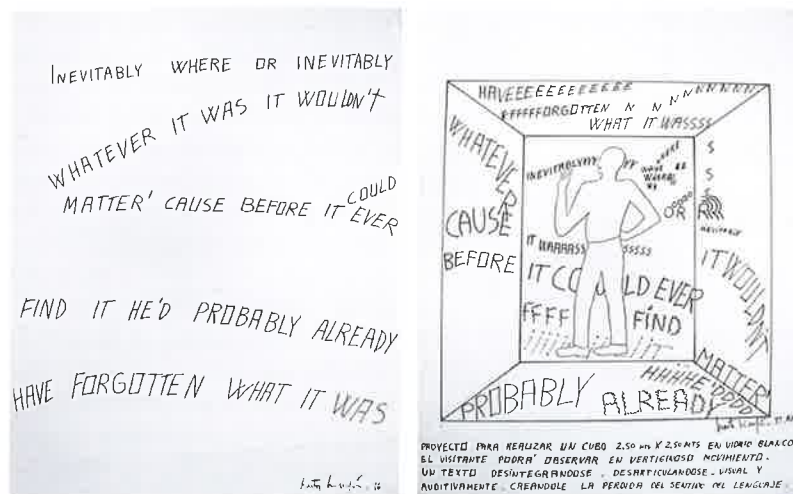 INEVITABLY WHERE OR INEVITABLY
WHATEVER IT WAS IT WOULDN'T
MATTER' CAUSE BEFORE IT COULD EVER
FIND IT HE'D PROBABLY ALREADY
HAVE FORGOTTEN WHAT IT WAS
HAVEEEEEEEEEEEE
FFFFFFORGOTTEN N N NNNNNNNN
WHAT IT WASSSS
WHATEVER
CAUSE
BEFORE
INEVITABLYYYY
OR
IT WAAAASS SSSSS
IT COULD EVER
FFFF FIND
IT WOULDN'T
MATTER'
HHHHE'DDDD
PROBABLY ALREADY
PROYECTO PARA REALIZAR UN CUBO 2.50 MTS X 2.50 MTS EN VIDRIO BLANCO
EL VISITANTE PODRA' OBSERVAR EN VERTIGINOSO MOVIMIENTO.
UN TEXTO DESINTEGRANDOSE. DESARTICULANDOSE. VISUAL Y
AUDITIVAMENTE. CREANDOLE LA PERDIDA DEL SENTIDO DEL LENGUAJE.